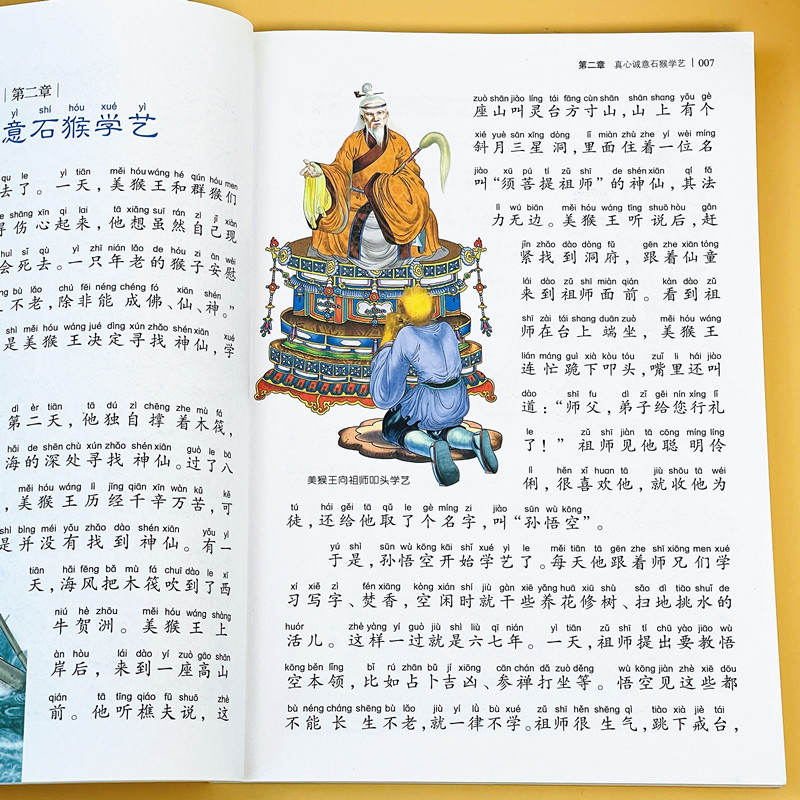 第二章
yì shí hóu xué yì
意石猴学艺
qu le yì tiān měi hóu wáng hé qún hóu men
去了。一天，美猴王和群猴们
e shāng xīn qi lai tā xiǎng suī rán zì jǐ xiàn
寻伤心起来，他想虽然自己现
huì sǐ qù yì zhī nián lǎo de hóu zi ān wèi
会死去。一只年老的猴子安慰
ng bù lǎo chú fēi néng chéng fó xiān shén
不老，除非能成佛、仙、神。”
shì měi hóu wáng jué dìng xún zhǎo shén xiān xué
是美猴王决定寻找神仙，学
dì èr tiān tā dú zì chēng zhe mù fá
第二天，他独自撑着木筏，
hǎi de shēn chù xún zhǎo shén xiān guò le bā
海的深处寻找神仙。过了八
měi hóu wáng lì jīng qiān xīn wàn kǔ kě
，美猴王历经千辛万苦，可
shì bìng méi yǒu zhǎo dào shén xiān yǒu yì
是并没有找到神仙。有一
tiān hǎi fēng bǎ mù fá chuī dào le xī
天，海风把木筏吹到了西
niú hè zhōu měi hóu wáng shàng
牛贺洲。美猴王上
àn hòu lái dào yí zuò gāo shān
岸后，来到一座高山
qián tā tīng qiáo fū shuō zhè
前。他听樵夫说，这
第二章 真心诚意石猴学艺 007
zuò shān jiào líng tái fāng cùn shān shān shang yǒu gè
座山叫灵台方寸山，山上有个
xié yuè sān xīng dòng lǐ miàn zhù zhe yí wèi míng
斜月三星洞，里面住着一位名
jiào xū pú tí zǔ shī de shén xiān qí fǎ
叫“须菩提祖师”的神仙，其法
lì wú biān měi hóu wáng tīng shuō hòu gǎn
力无边。美猴王听说后，赶
jǐn zhǎo dào dòng fǔ gēn zhe xiān tóng
紧找到洞府，跟着仙童
lái dào zǔ shī miàn qián kàn dào zǔ
来到祖师面前。看到祖
shī zài tái shang duān zuò měi hóu wáng
师在台上端坐，美猴王
lián máng guì xià kòu tóu zuǐ li hái jiào
连忙跪下叩头，嘴里还叫
dào shī fu dì zǐ gěi nín xíng lǐ
道：“师父，弟子给您行礼
le zǔ shī jiàn tā cōng míng líng
了！”祖师见他聪明伶
lì hěn xǐ huan tā jiù shōu tā wéi
俐，很喜欢他，就收他为
美猴王向祖师叩头学艺
tú hái gěi tā qǔ le gè míng zi jiào sūn wù kōng
徒，还给他取了个名字，叫“孙悟空”。
yú shì sūn wù kōng kāi shǐ xué yì le měi tiān tā gēn zhe shī xiōng men xué
于是，孙悟空开始学艺了。每天他跟着师兄们学
xí xiě zì fén xiāng kòng xián shí jiù gàn xiē yǎng huā xiū shù sǎo dì tiāo shuǐ de
习写字、焚香，空闲时就干些养花修树、扫地挑水的
huór zhè yàng yí guò jiù shì liù qī nián yì tiān zǔ shī tí chū yào jiāo wù
活儿。这样一过就是六七年。一天，祖师提出要教悟
kōng běn lǐng bǐ rú zhān bǔ jí xiōng cān chán dǎ zuò děng wù kōng jiàn zhè xiē dōu
空本领，比如占卜吉凶、参禅打坐等。悟空见这些都
bù néng cháng shēng bù lǎo jiù yí lǜ bù xué zǔ shī hěn shēng qì tiào xià jiè tái
不能长生不老，就一律不学。祖师很生气，跳下戒台，